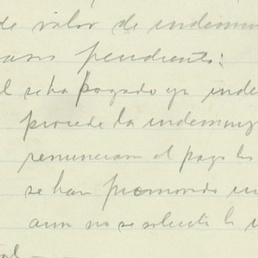 de valor de indemni
casos pendiente:
l se ha pagado ya inde
procede la indemniz
renuncian al pago los
se han promovido in
aun no se solicita la i